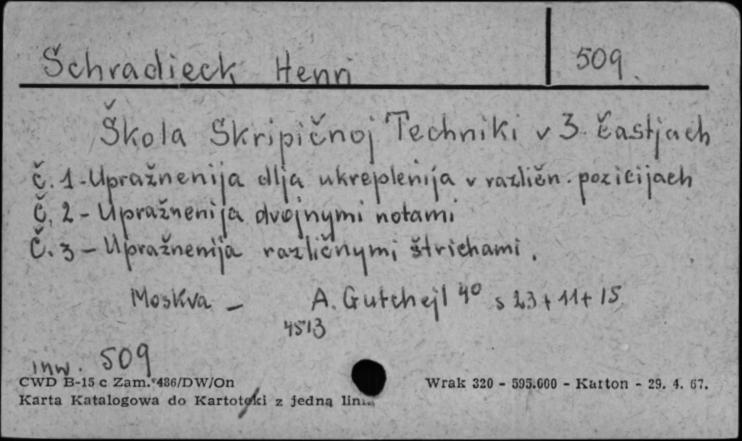 Schradieck Henri 509.
Škola Skripičnoj Techniki v 3 častjach
Č. 1 - Upražnenija dlja ukreplenija v različn. pozicijach
Č. 2 - Upražnenija dvojnymi notami
Č. 3 - Upražnenija različnymi štrichami.
Moskva - A. Gutchejl 4° s 23 + 11 + 15
4513
inw. 509
CWD B-15 c Zam. 486/DW/On Wrak 320 - 595.000 - Karton - 29. 4. 67.
Karta Katalogowa do Kartoteki z jedną linią